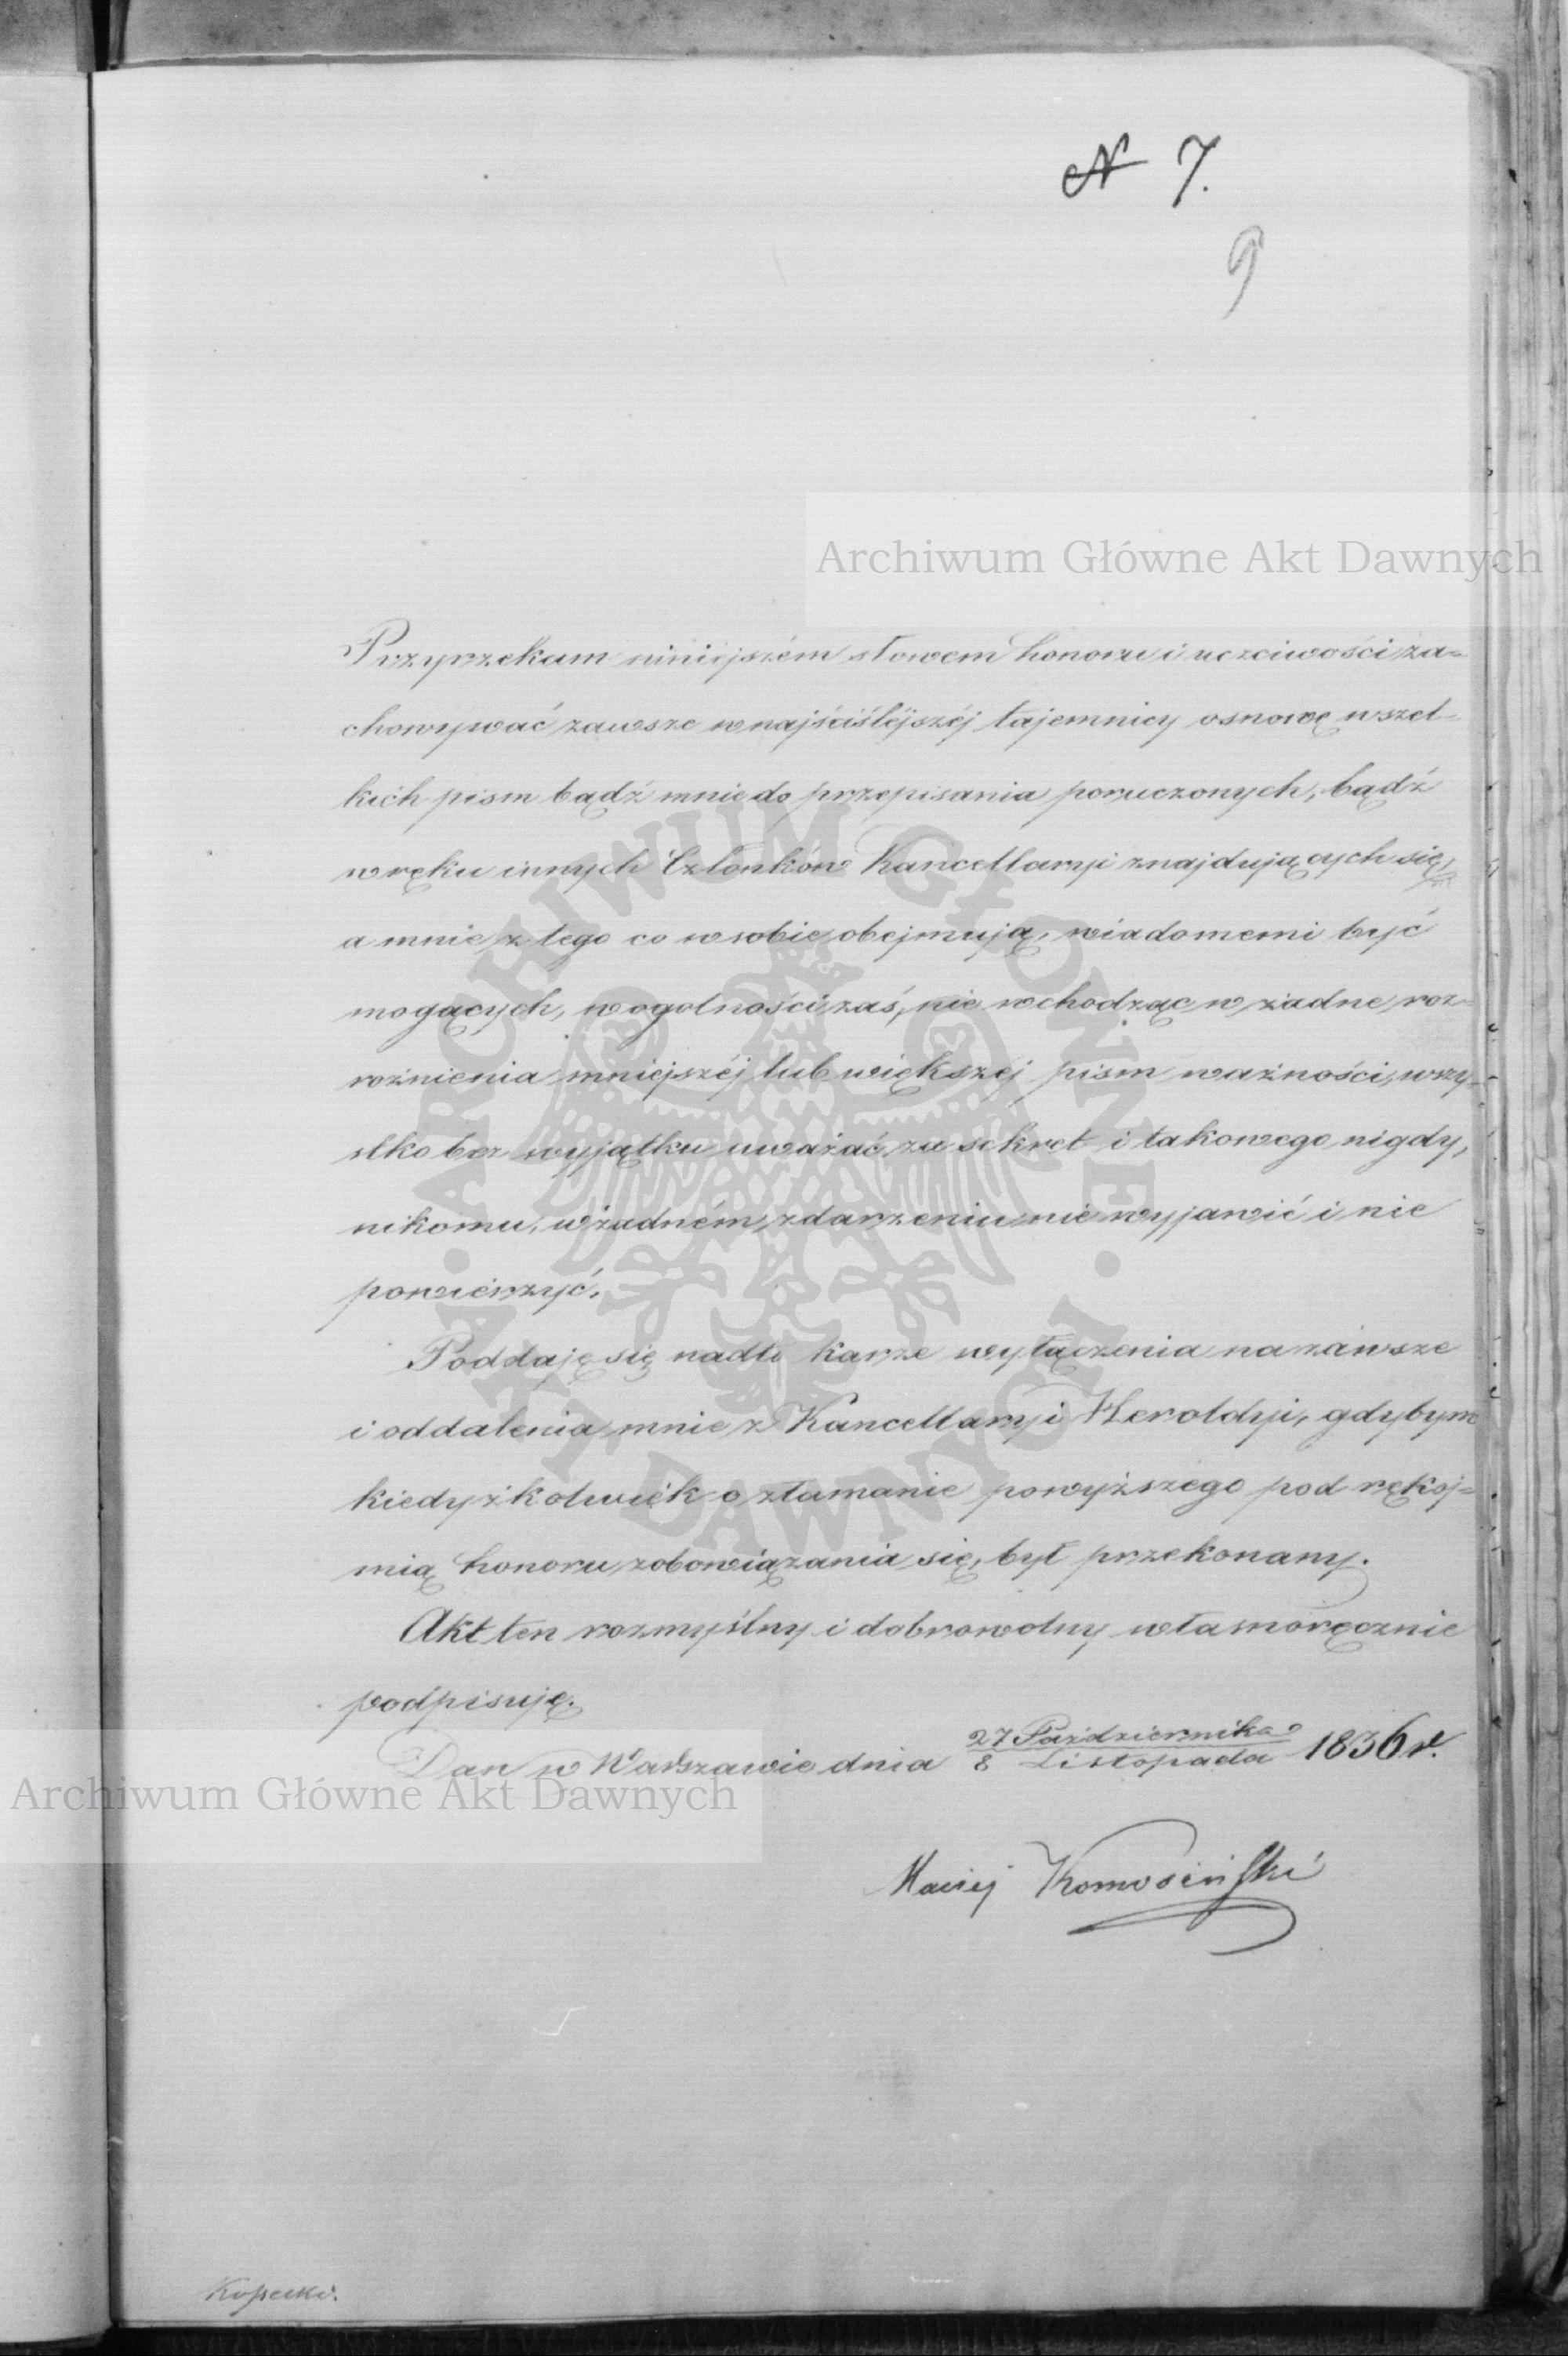 N 7.
9
Archiwum Główne Akt Dawnych
Przyrzekam niniejszém słowem honoru i uczciwości za=
chowywać zawsze w najściśléjszéj tajemnicy osnowę wszel=
kich pism bądź mnie do przepisania poruczonych, bądź
w ręku innych Członków Kancellaryi znajdujących się,
a mnie z tego co w sobie obejmują, wiadomemi być
mogących, w ogolności zaś, nie wchodząc w żadne roz=
rożnienia mniejszéj lub większéj pism ważności, wszy=
stko bez wyjątku uważać za sekret i takowego nigdy,
nikomu, w żadném zdarzeniu nie wyjawić i nie
powierzyć.
Poddaję się nadto karze wyłączenia na zawsze
i oddalenia mnie z Kancellaryi Heroldyi, gdybym
kiedyżkolwiek o złamanie powyższego pod rękoj=
mią honoru zobowiązania się, był przekonany.
Akt ten rozmyślny i dobrowolny własnoręcznie
podpisuję.
Dan w Warszawie dnia 27 Października / 8 Listopada 1836 r.
Archiwum Główne Akt Dawnych
Maciej Komosiński
ARCHIWUM GŁÓWNE AKT DAWNYCH